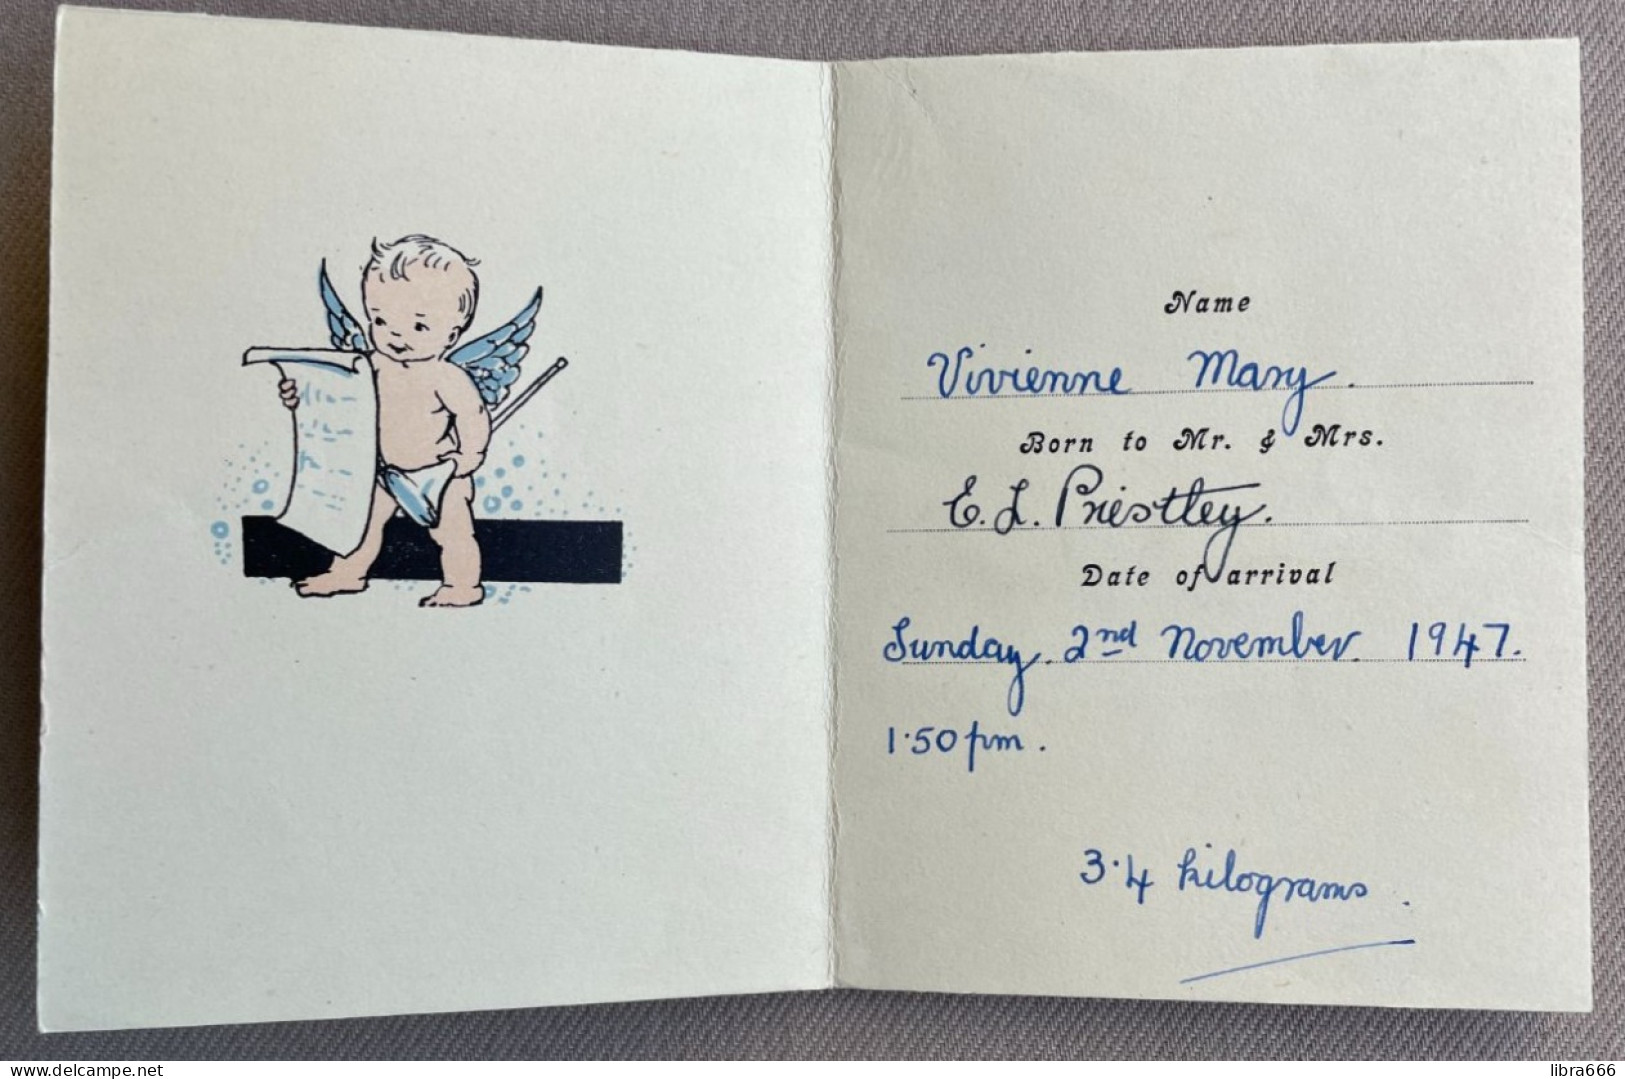 Name
Vivienne Mary.
Born to Mr. & Mrs.
E. L. Priestley.
Date of arrival
Sunday. 2nd November. 1947.
1·50 pm.
3·4 kilograms.
www.delcampe.net
libra666